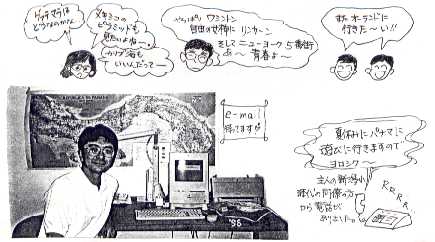 グアテマラは
どうなのかなぁ
メキシコの
ピラミッドも
見たいよねー。
カリブ海も
いいんだってー
やっぱり ワシントン
自由の女神に リンカーン
そして ニューヨーク 5番街
あ〜 青春よ〜
また オーランドに
行きた〜い!!
REPUBLICA DE PANAMA
e-mail
待ってます
'96
パナマに
遊びに行きますので
ヨロシク〜
主人の
時代の同僚の方
から電話が
ありました。
RRRR